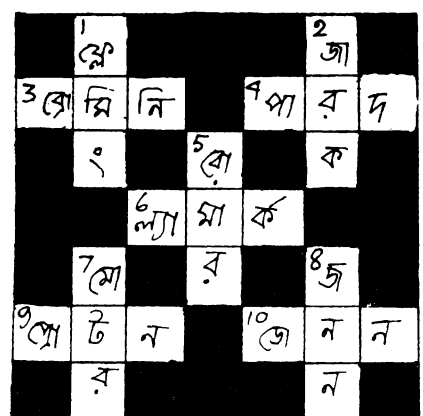 1 ফ্লে 2 জা
3 ব্রো মি নি 4 পা র দ
ং 5 বো ক
6 ল্যা মা র্ক
7 মো র 8 জ
9 প্রো ট ন 10 জে ন ন
র ন